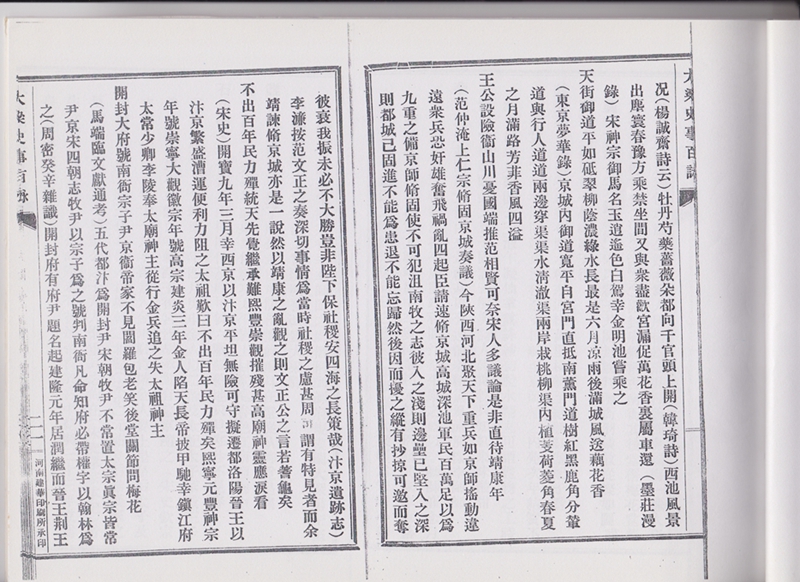 大梁史事百詠
況（楊誠齋詩云）牡丹芍藥薔薇朵都向千官頭上開（韓琦詩）西池風景
出塵寰春豫方乘禁坐間又與衆盡歡宮漏促萬花香裏屬車還（墨莊漫
錄）宋神宗御馬名玉逍遙色白駕幸金明池嘗乘之
天街御道平如砥翠柳蔭濃綠水長最是六月凉雨後滿城風送藕花香
（東京夢華錄）京城內御道寬平自宮門直抵南薰門道樹紅黑鹿角分輦
道與行人道道兩邊穿渠渠水清澈渠兩岸栽桃柳渠內植芰荷菱角春夏
之月滿路芳非香風四溢
王公設險衞山川憂國端推范相賢可奈宋人多議論是非直待靖康年
（范仲淹上仁宗脩固京城奏議）今陝西河北聚天下重兵如京師搖動違
遠衆兵恐奸雄奮飛禍亂四起臣請速脩京城高城深池軍民百萬足以爲
九重之備京師脩固使不可犯沮南牧之志彼入之淺則邊壘已堅入之深
則都城已固進不能爲患退不能忘歸然後因而擾之縱有抄掠可邀而奪
彼衰我振未必不大勝豈非陛下保社稷安四海之長策哉（汴京遺跡志）
李濂按范文正之奏深切事情爲當時社稷之慮甚周可謂有特見者而余
靖諫脩京城亦是一說然以靖康之亂觀之則文正公之言若蓍龜矣
不出百年民力殫統天先覺繼承難熙豐崇觀摧殘甚高廟神靈應淚看
（宋史）開寶九年三月幸西京以汴京平坦無險可守擬遷都洛陽晉王以
汴京繁盛漕運便利力阻之太祖歎曰不出百年民力殫矣熙寧元豐神宗
年號崇寧大觀徽宗年號高宗建炎三年金人陷天長帝披甲馳幸鎮江府
太常少卿李陵奉太廟神主從行金兵追之失太祖神主
開封大府號南衙宗子尹京衞帝家不見閻羅包老笑後堂關節問梅花
（馬端臨文獻通考）五代都汴爲開封尹宋朝牧尹不常置太宗眞宗皆常
尹京宋四朝志牧尹以宗子爲之號判南衙凡命知府必帶權字以翰林爲
之（周密癸辛雜識）開封府有府尹題名起建隆元年居潤繼而晉王荊王
大梁史事百詠
河南建華印刷所承印